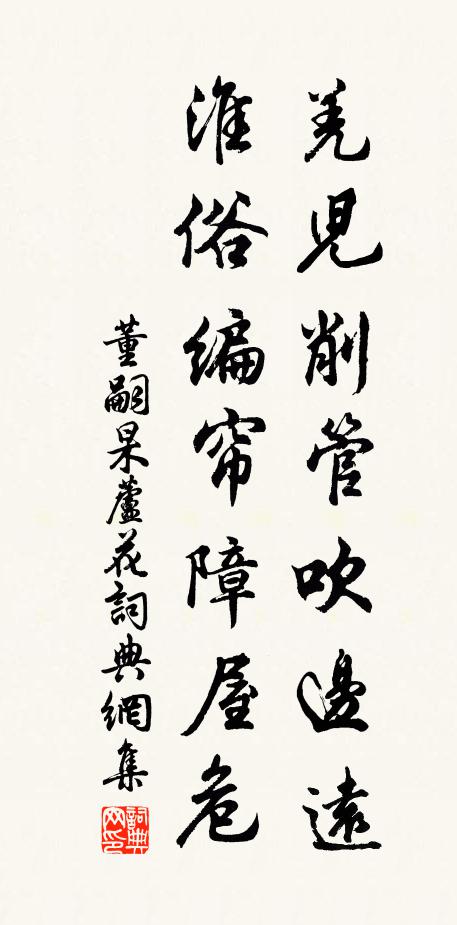 羌兒削管吹邊遠
淮俗編帘障屋危
董嗣杲蘆花詞典網集
詞典網印